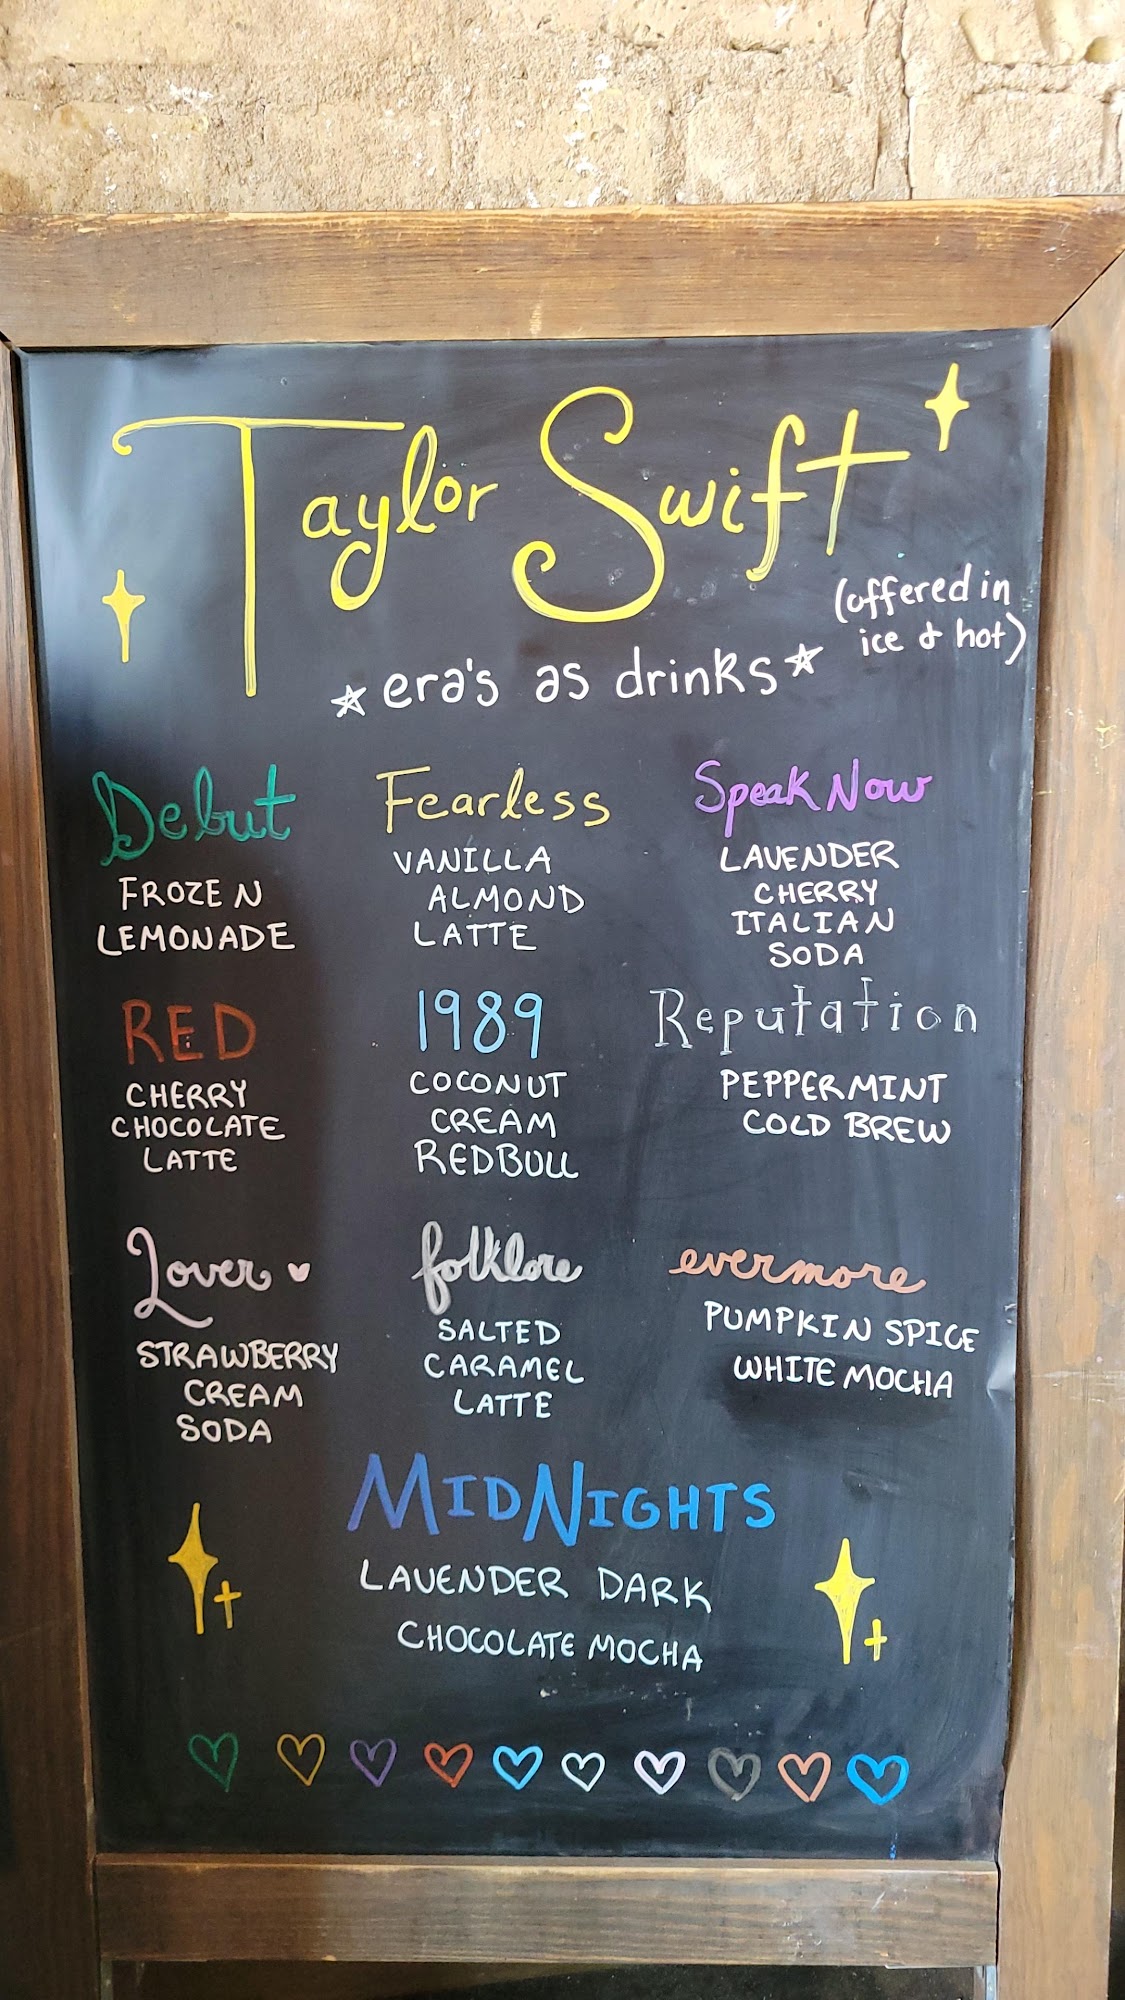 Taylor Swift
(offered in
ice & hot)
☆era's as drinks☆
Debut
FROZEN
LEMONADE
Fearless
VANILLA
ALMOND
LATTE
Speak Now
LAVENDER
CHERRY
ITALIAN
SODA
RED
CHERRY
CHOCOLATE
LATTE
1989
COCONUT
CREAM
REDBULL
Reputation
PEPPERMINT
COLD BREW
Lover
STRAWBERRY
CREAM
SODA
folklore
SALTED
CARAMEL
LATTE
evermore
PUMPKIN SPICE
WHITE MOCHA
MIDNIGHTS
LAVENDER DARK
CHOCOLATE MOCHA